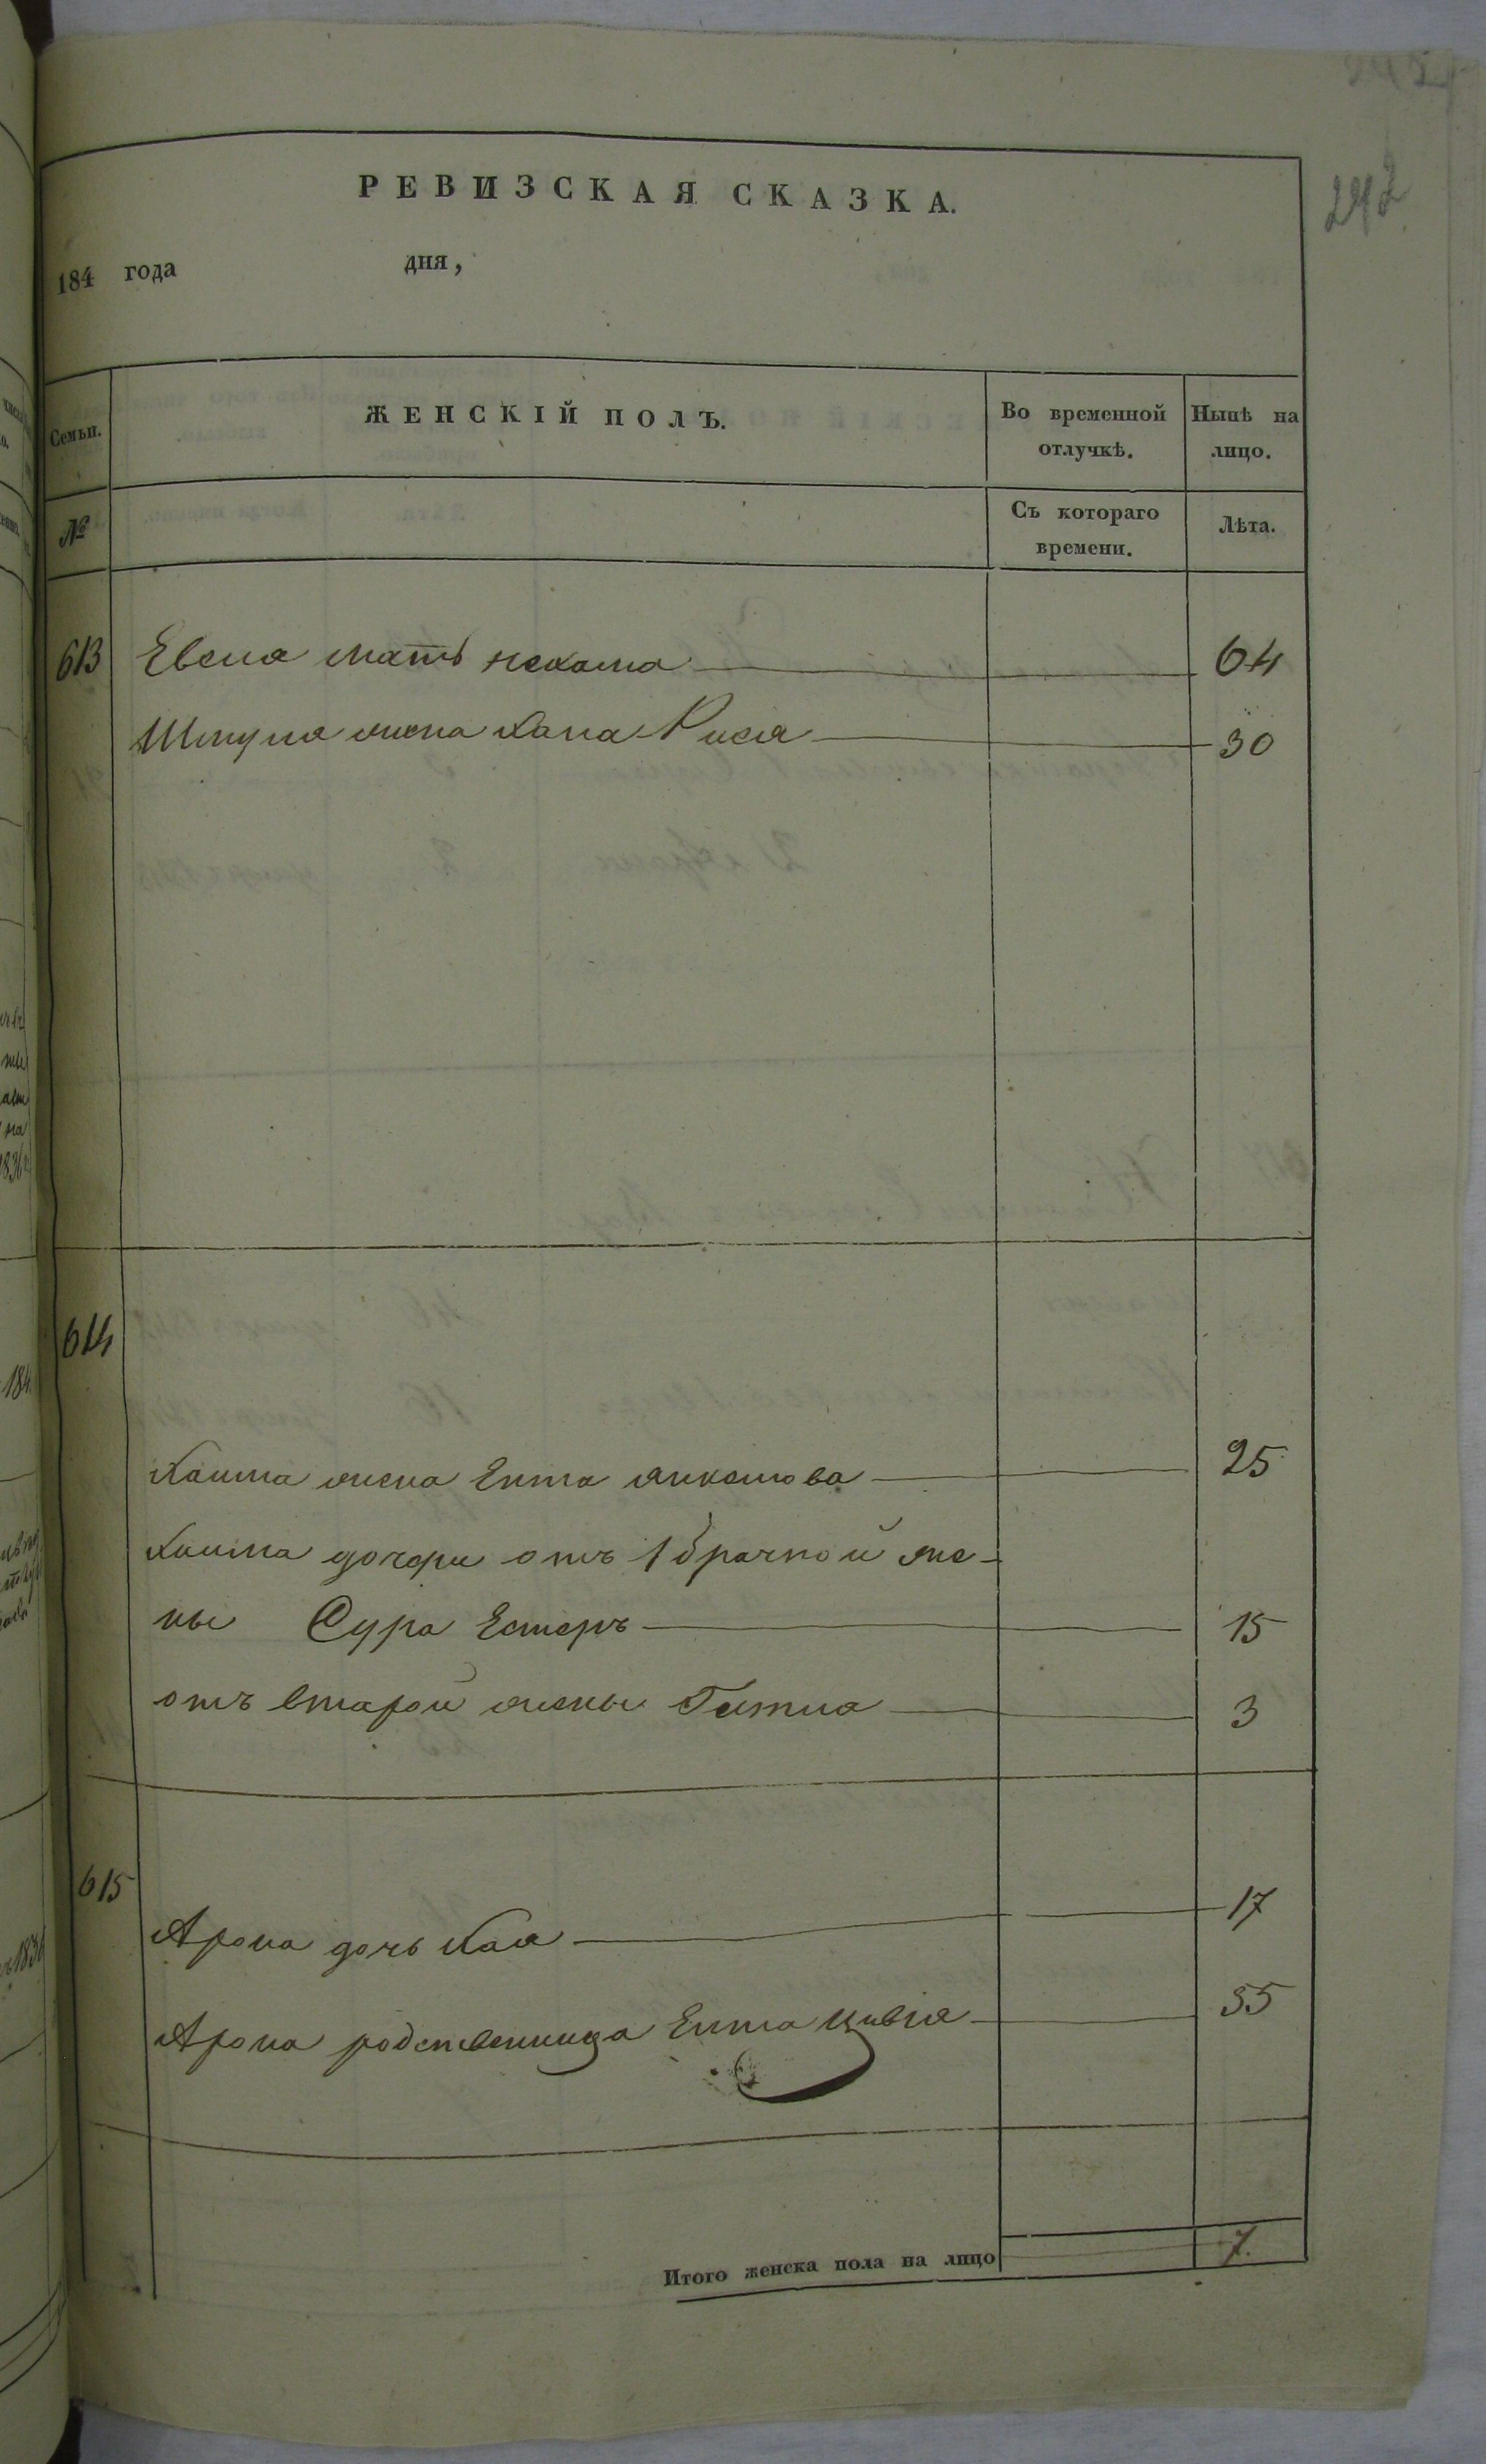 292
РЕВИЗСКАЯ СКАЗКА.
184 года дня,
Семьи. ЖЕНСКІЙ ПОЛЪ. Во временной отлучкѣ. Нынѣ на лицо.
№ Съ котораго времени. Лѣта.
613 мать Нехама 64
жена Хана Рися 30
614
Хаима жена Ента Анкелiова 25
Хаима дочери отъ 1 брачной же-
ны Сура Естеръ 15
отъ второй жены Гитля 3
615
Арона дочь Хая 17
Арона родственница Ента Цивiя 55
Итого женска пола на лицо 7.